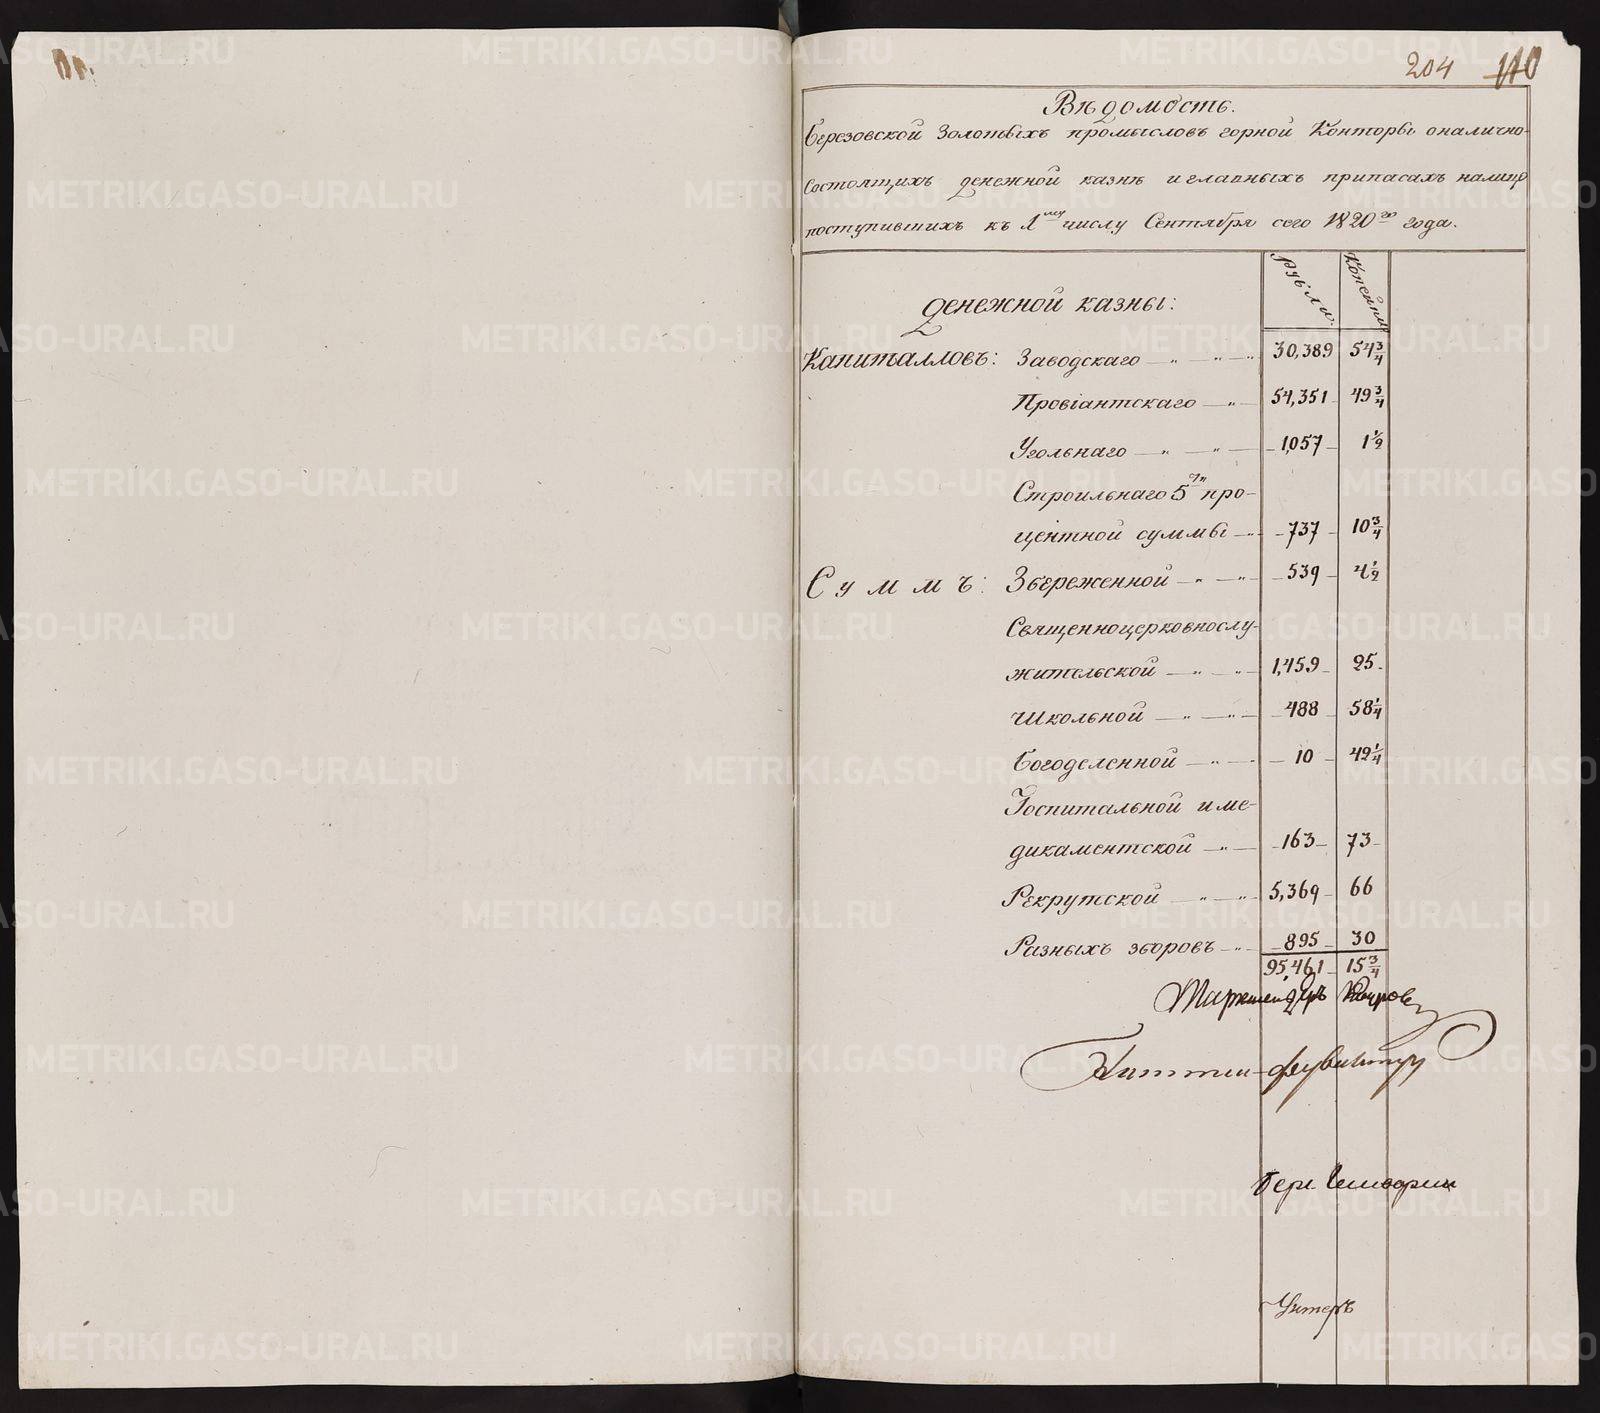 204 110
Вѣдомость.
Березовской Золотыхъ промысловъ горной Конторы оналично-
состоящихъ денежной казнѣ иглавныхъ припасахъ налицо
поступившихъ къ 1му числу Сентября сего 1820го года.
Рубли. Копейки
денежной казны:
Капиталловъ: Заводскаго — „ — „ — 30,389 54 3/4
Провіантскаго — „ — 54,351 49 3/4
Угольнаго — „ — „ — 1,057 1 1/2
Строильнаго 5ти про-
центной суммы — „ 737 10 3/4
Суммъ: Збереженной — „ — „ 539 4 1/2
Священноцерковнослу-
жительской — „ — „ 1,459 25
Школьной — „ — „ 488 58 1/4
Богоделенной — „ — 10 42 1/4
Госпитальной име-
дикаментской — „ — 163 73
Рекрутской — „ — „ 5,369 66
Разныхъ зборовъ — „ 895 30
95,461 15 3/4
Маркшейдеръ
Унтеръ
METRIKI.GASO-URAL.RU